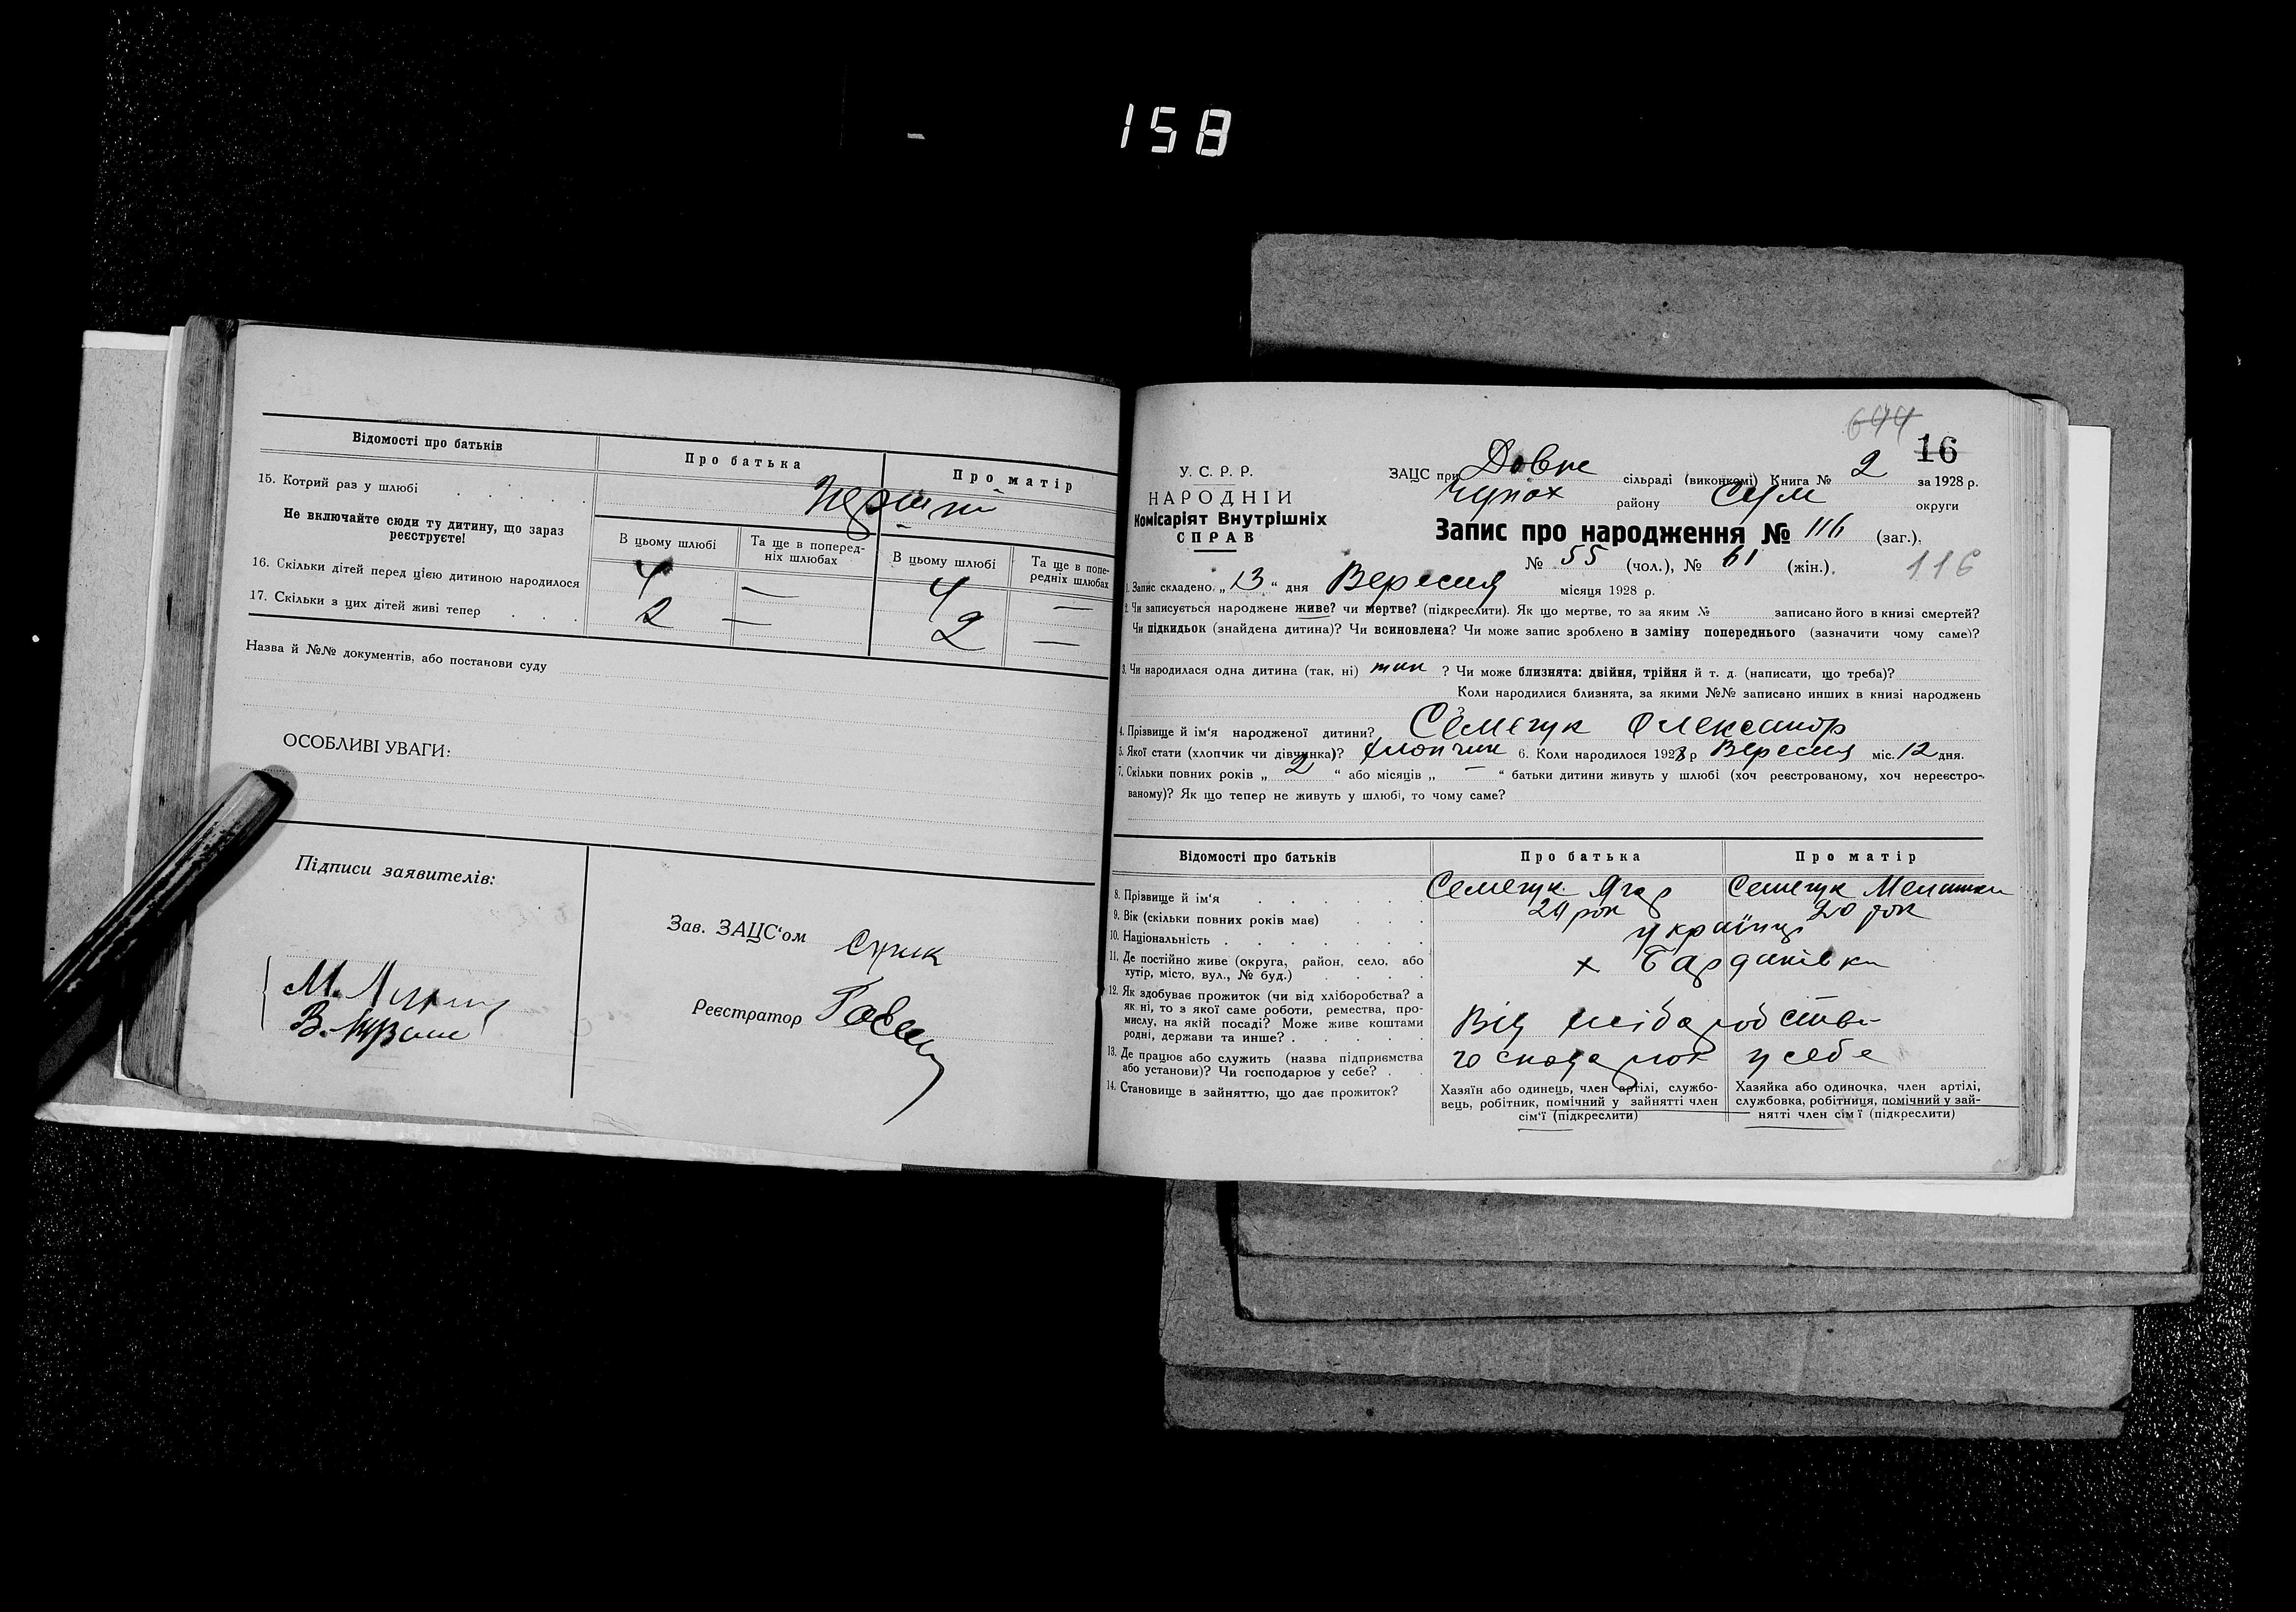 158
Відомості про батьків
Про батька
Про матір
15. Котрий раз у шлюбі
Не включайте сюди ту дитину, що зараз
реєструєте!
В цьому шлюбі
Та ще в поперед-
ніх шлюбах
В цьому шлюбі
Та ще в попе-
редніх шлюбах
16. Скільки дітей перед цією дитиною народилося 4 — 4 —
17. Скільки з цих дітей живі тепер 2 — 2 —
Назва й №№ документів, або постанови суду
ОСОБЛИВІ УВАГИ:
Підписи заявителів:
Зав. ЗАЦС'ом
Реєстратор
М.
В.
644
16
У. С. Р. Р.
НАРОДНІЙ
Комісаріят Внутрішніх
СПРАВ
ЗАЦС при Довже сільраді (виконкомі) Книга № 2 за 1928 р.
Чупах району Сум округи
Запис про народження № 116 (заг.).
№ 55 (чол.), № 61 (жін.). 116
1. Запис складено „13“ дня Вересня місяця 1928 р.
2. Чи записується народжене живе? чи мертве? (підкреслити). Як що мертве, то за яким № записано його в книзі смертей?
Чи підкидьок (знайдена дитина)? Чи всиновлена? Чи може запис зроблено в заміну попереднього (зазначити чому саме)?
3. Чи народилася одна дитина (так, ні) так ? Чи може близнята: двійня, трійня й т. д. (написати, що треба)?
Коли народилися близнята, за якими №№ записано инших в книзі народжень
4. Прізвище й ім'я народженої дитини? Семечук Олександр
5. Якої стати (хлопчик чи дівчинка)? хлопчик 6. Коли народилося 1928 р Вересня міс. 12 дня.
7. Скільки повних років „ 2 “ або місяців „ — “ батьки дитини живуть у шлюбі (хоч реєстрованому, хоч нереєстро-
ваному)? Як що тепер не живуть у шлюбі, то чому саме?
Відомості про батьків
Про батька
Про матір
8. Прізвище й ім'я Семечук Семечук
9. Вік (скільки повних років має) рок 20 рок
10. Національність українці
11. Де постійно живе (округа, район, село, або
хутір, місто, вул., № буд.) х
12. Як здобуває прожиток (чи від хліборобства? а
як ні, то з якої саме роботи, ремества, про-
мислу, на якій посаді? Може живе коштами
родні, держави та инше? Від хліборобства
13. Де працює або служить (назва підприємства
або установи)? Чи господарює у себе? господарює у себе
14. Становище в зайняттю, що дає прожиток?
Хазяїн або одинець, член артілі, службо-
вець, робітник, помічний у зайнятті член
сім'ї (підкреслити)
Хазяйка або одиночка, член артілі,
службовка, робітниця, помічний у зай-
нятті член сім'ї (підкреслити)